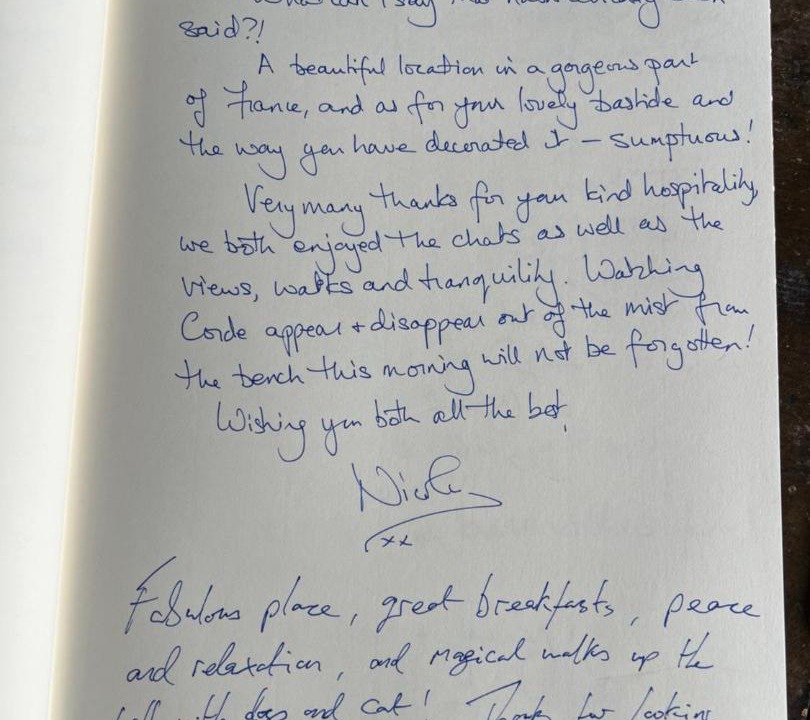 What can I say
said?!
A beautiful location in a gorgeous part
of France, and as for your lovely bastide and
the way you have decorated it – sumptuous!
Very many thanks for your kind hospitality,
we both enjoyed the chats as well as the
views, walks and tranquility. Watching
Corde appear + disappear out of the mist from
the bench this morning will not be forgotten!
Wishing you both all the best,
Nicole
xx
Fabulous place, great breakfasts, peace
and relaxation, and magical walks up the
dog and cat! Thanks for looking